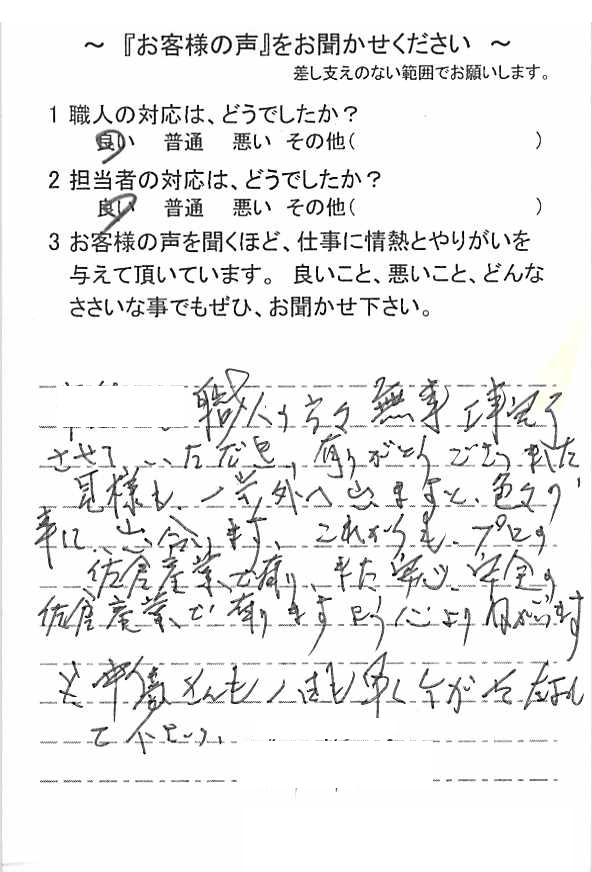 ~ 『お客様の声』をお聞かせください ~
差し支えのない範囲でお願いします。
1 職人の対応は、どうでしたか?
良い 普通 悪い その他( )
2 担当者の対応は、どうでしたか?
良い 普通 悪い その他( )
3 お客様の声を聞くほど、仕事に情熱とやりがいを
与えて頂いています。 良いこと、悪いこと、どんな
ささいな事でもぜひ、お聞かせ下さい。
職人の方々 無事工事完了
させていただき、有りがとうございました
皆様も、一歩外へ出ますと、色々の
事に 出合います、これからも、プロの
佐倉産業で有り、また安心、安全の
佐倉産業で有りますよう心より願います
さんも 一日も早く
て下さい、